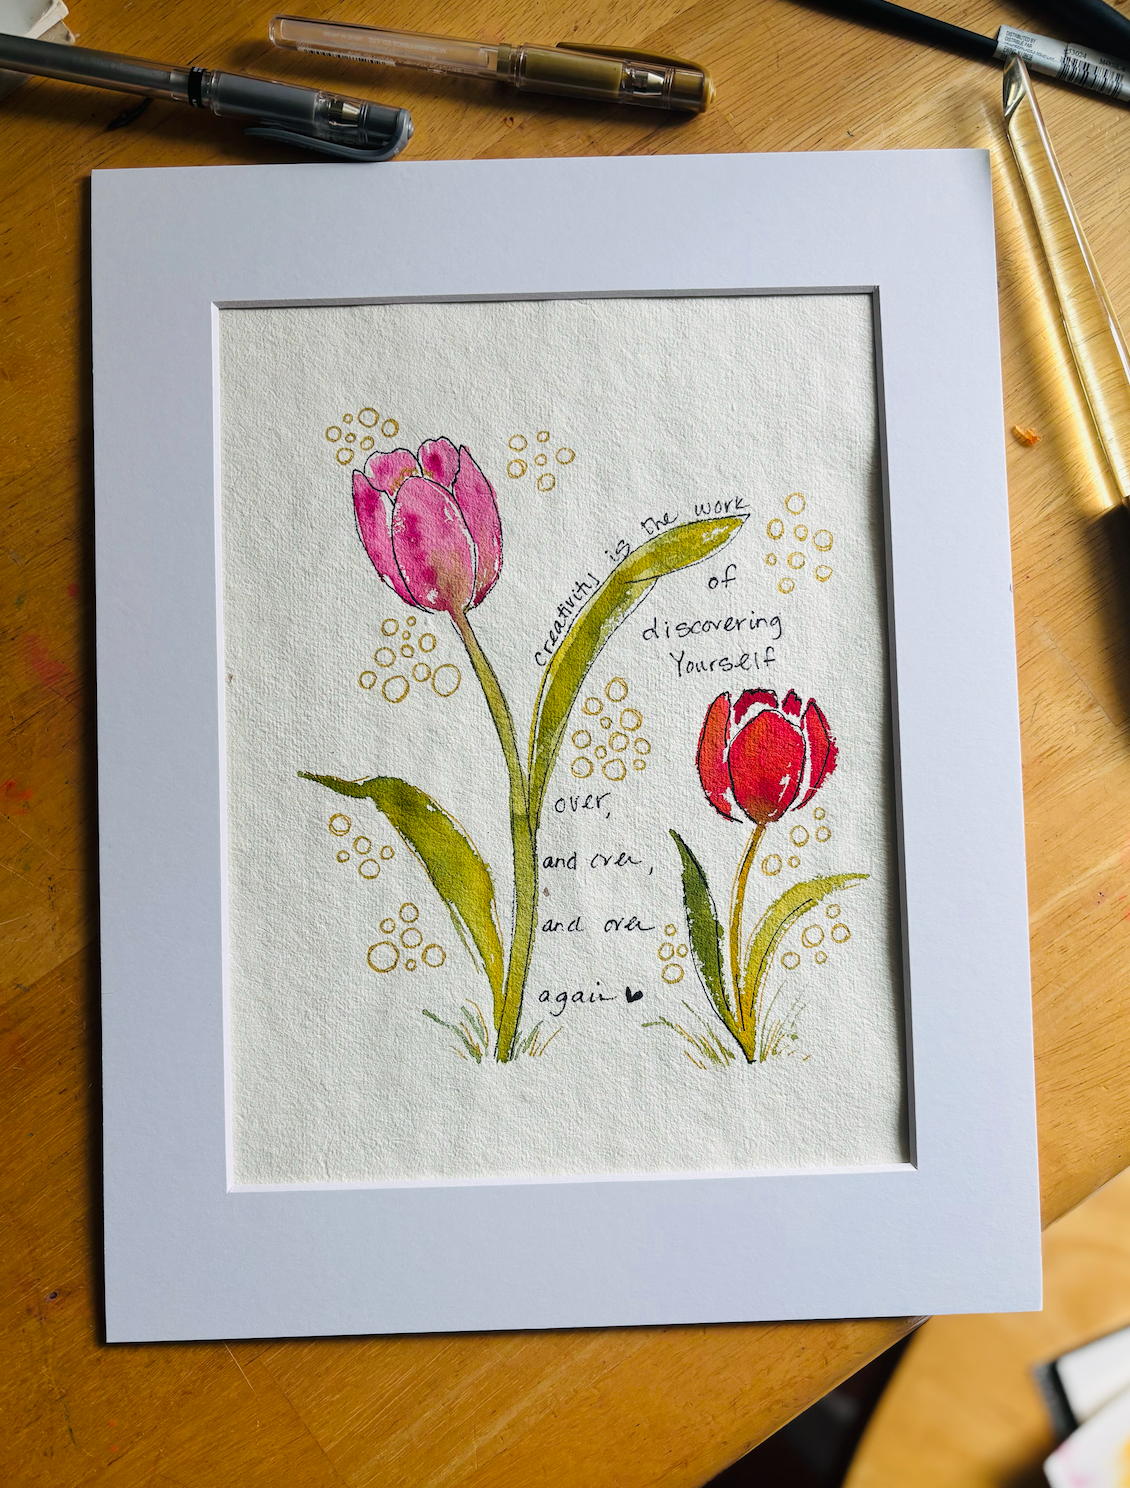 creativity is the work
of
discovering
Yourself
over,
and over,
and over
again
DISTRIBUTED BY